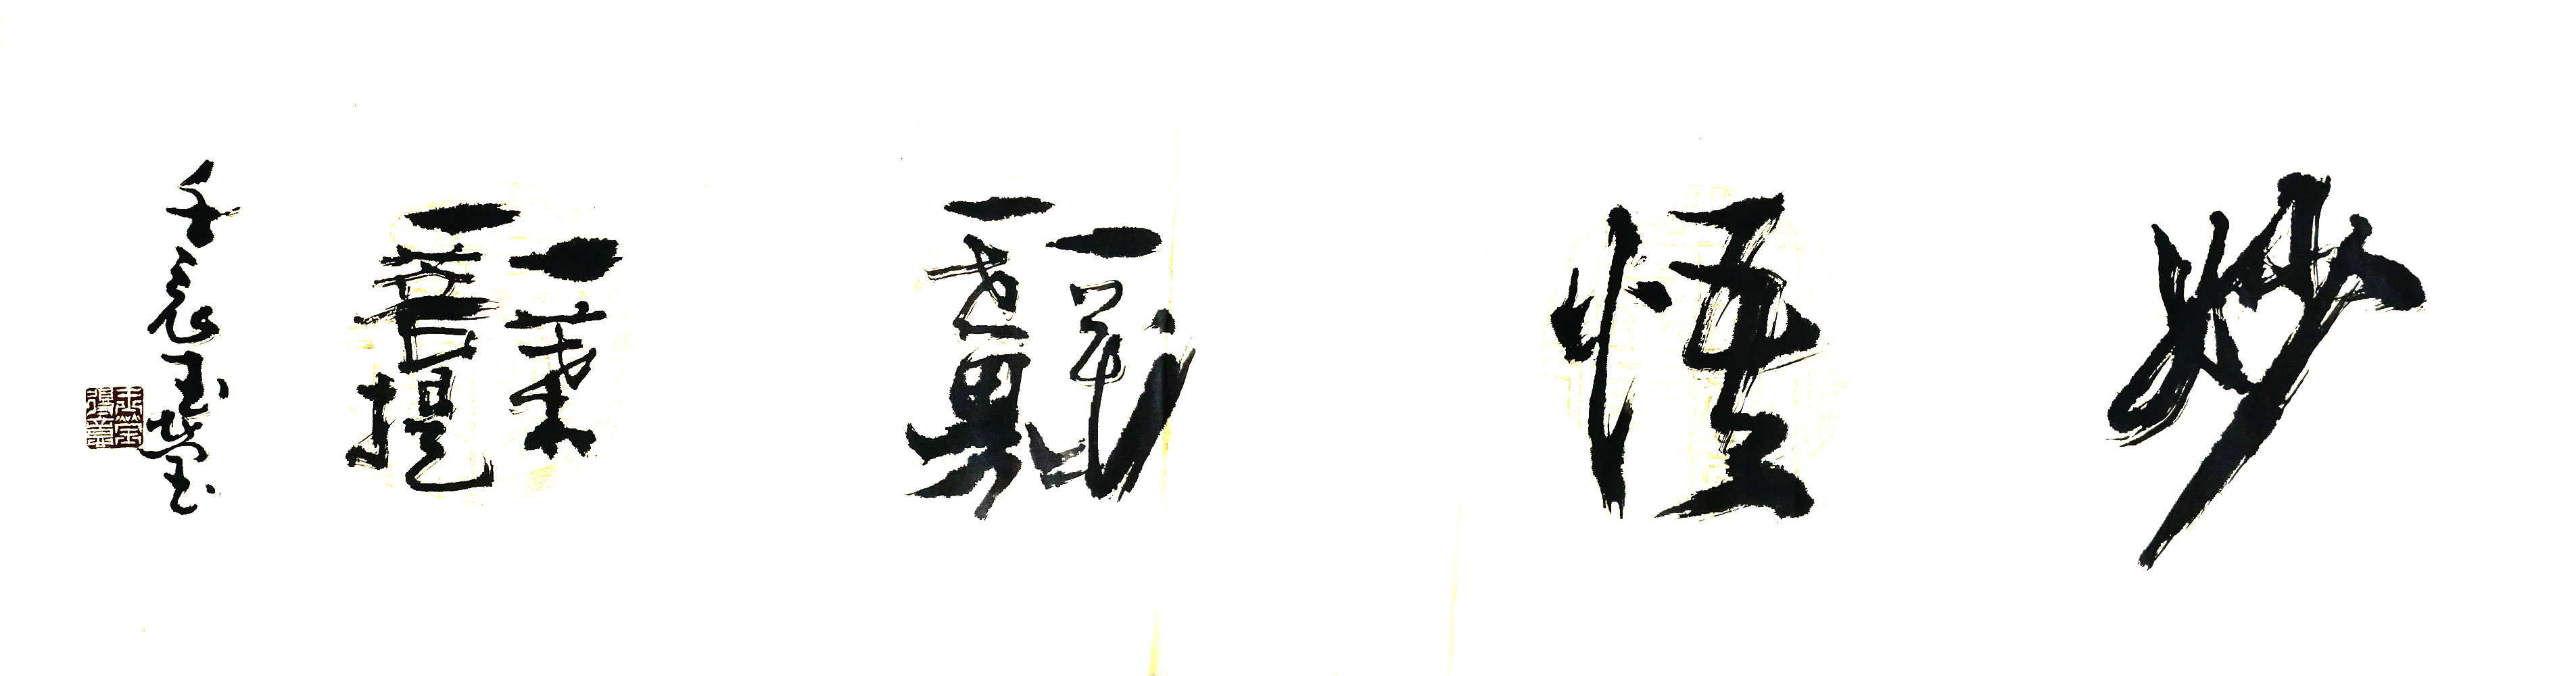 妙
悟
一花
一世界
一葉
一菩提
壬辰玉莹